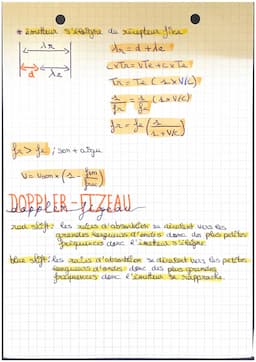 * émetteur s'éloigne du récepteur fixe
λr
d λe
λr = d + λe
c×Tr = V×Te + c×Te
Tr = Te (1+V/c)
1/fr = 1/fe (1+V/c)
fr = fe (1/(1+V/c))
fr > fe ; son + aigu
V = Vson × (1 - fem/frec)
DOPPLER-FIZEAU
doppler fizeau
red shift: les raies d'absorption se décalent vers les
grandes longueurs d'ondes donc des plus petites
fréquences donc l'émetteur s'éloigne.
blue shift: les raies d'absorption se décalent vers les petites
longueurs d'ondes donc des plus grandes
fréquences donc l'émetteur se rapproche.